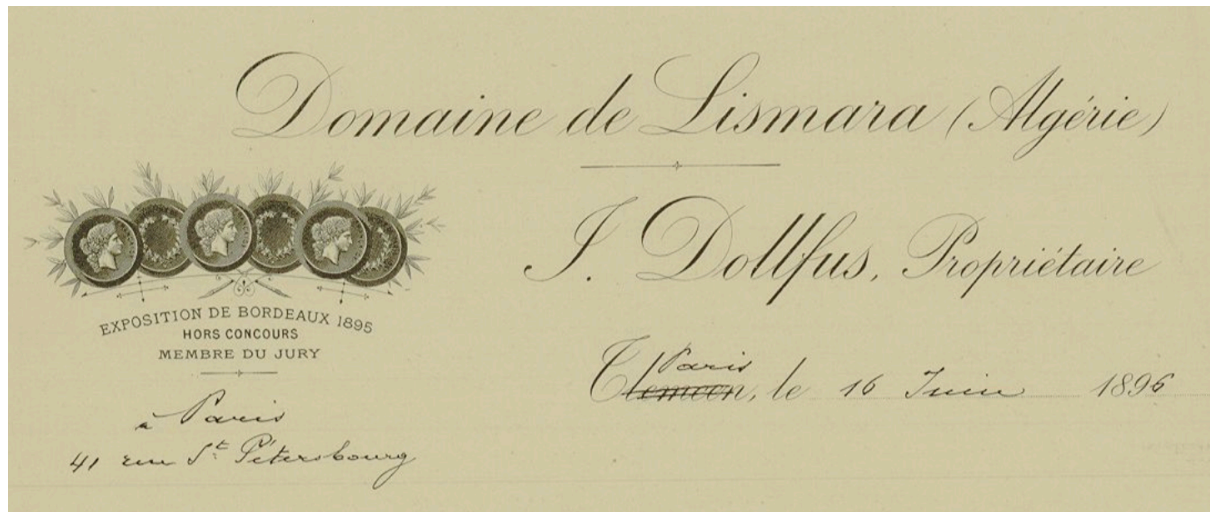 Domaine de Lismara (Algérie)
J. Dollfus, Propriétaire
EXPOSITION DE BORDEAUX 1895
HORS CONCOURS
MEMBRE DU JURY
à Paris
41 rue St. Pétersbourg
Paris
Tlemcen, le 16 Juin 1896